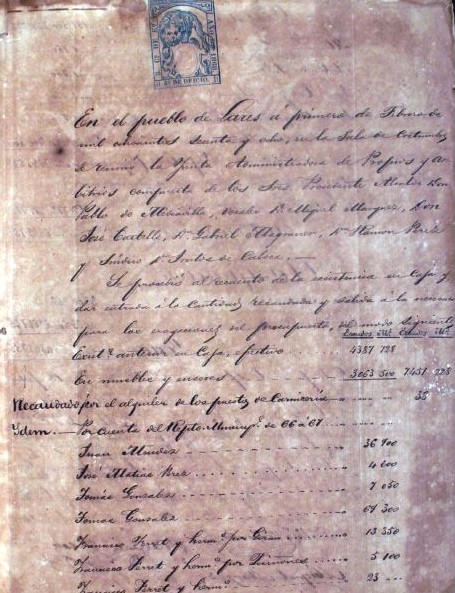 En el pueblo de Lares á primero de Febrero de
mil ochocientos sesenta y ocho, en la Sala de Costumbre
se reunió la Junta Administradora de Propios y Ar-
bitrios compuesta de los Sres. Presidente Alcalde Don
Pablo de
Vocales Dn. Miguel Marquez, Don
José Castillo, Dn. Gabriel Dn. Ramon Perez
y Síndico Dn. de Cabeza. —
Se procedió al recuento de la existencia en Caja y
dar entrada á la Cantidad recaudada y salida á la necesaria
para las del presupuesto, del modo siguiente
Escudos Mil. Escudos Mil.
Exist.a anterior en Caja, efectivo 4387 728
En muebles y enseres 3063 500 7451 228
Recaudado por el alquiler de los puestos de Carnicería 35
Idem — Por cuenta del Repto. Munic.l de 66 á 67
Juan Mendez 36 700
José Matias Brez 4 600
Tomás Gonzalez 7 050
Tomas Gonzalez 67 300
Francisco Ferret y herm.o por 13 350
Francisco Ferret y herm.o por Quiñones 5 100
Francisco Ferret y herm.o 23